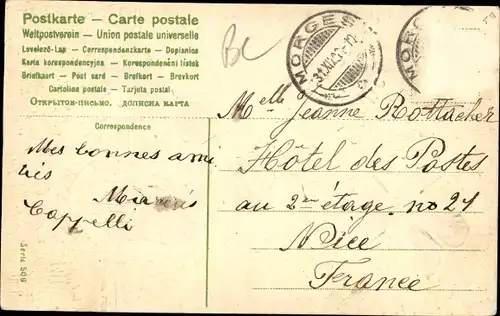 Postkarte – Carte postale
Weltpostverein – Union postale universelle
Levelező-Lap – Correspondenzkarte – Dopisnice
Karta korespondencyjna – Korespondenčni listek
Briefkaart – Post card – Brefkort – Brevkort
Cartolina postale – Tarjeta postal
Открытое-письмо. дописна карта
Correspondence
BC
MORGES
31.XII.
MORG
Melle Jeanne Rottacher
Hôtel des Postes
au 2me étage. no 21
Nice
France
Mes bonnes ami
tiés
Cappelli
Serie 509